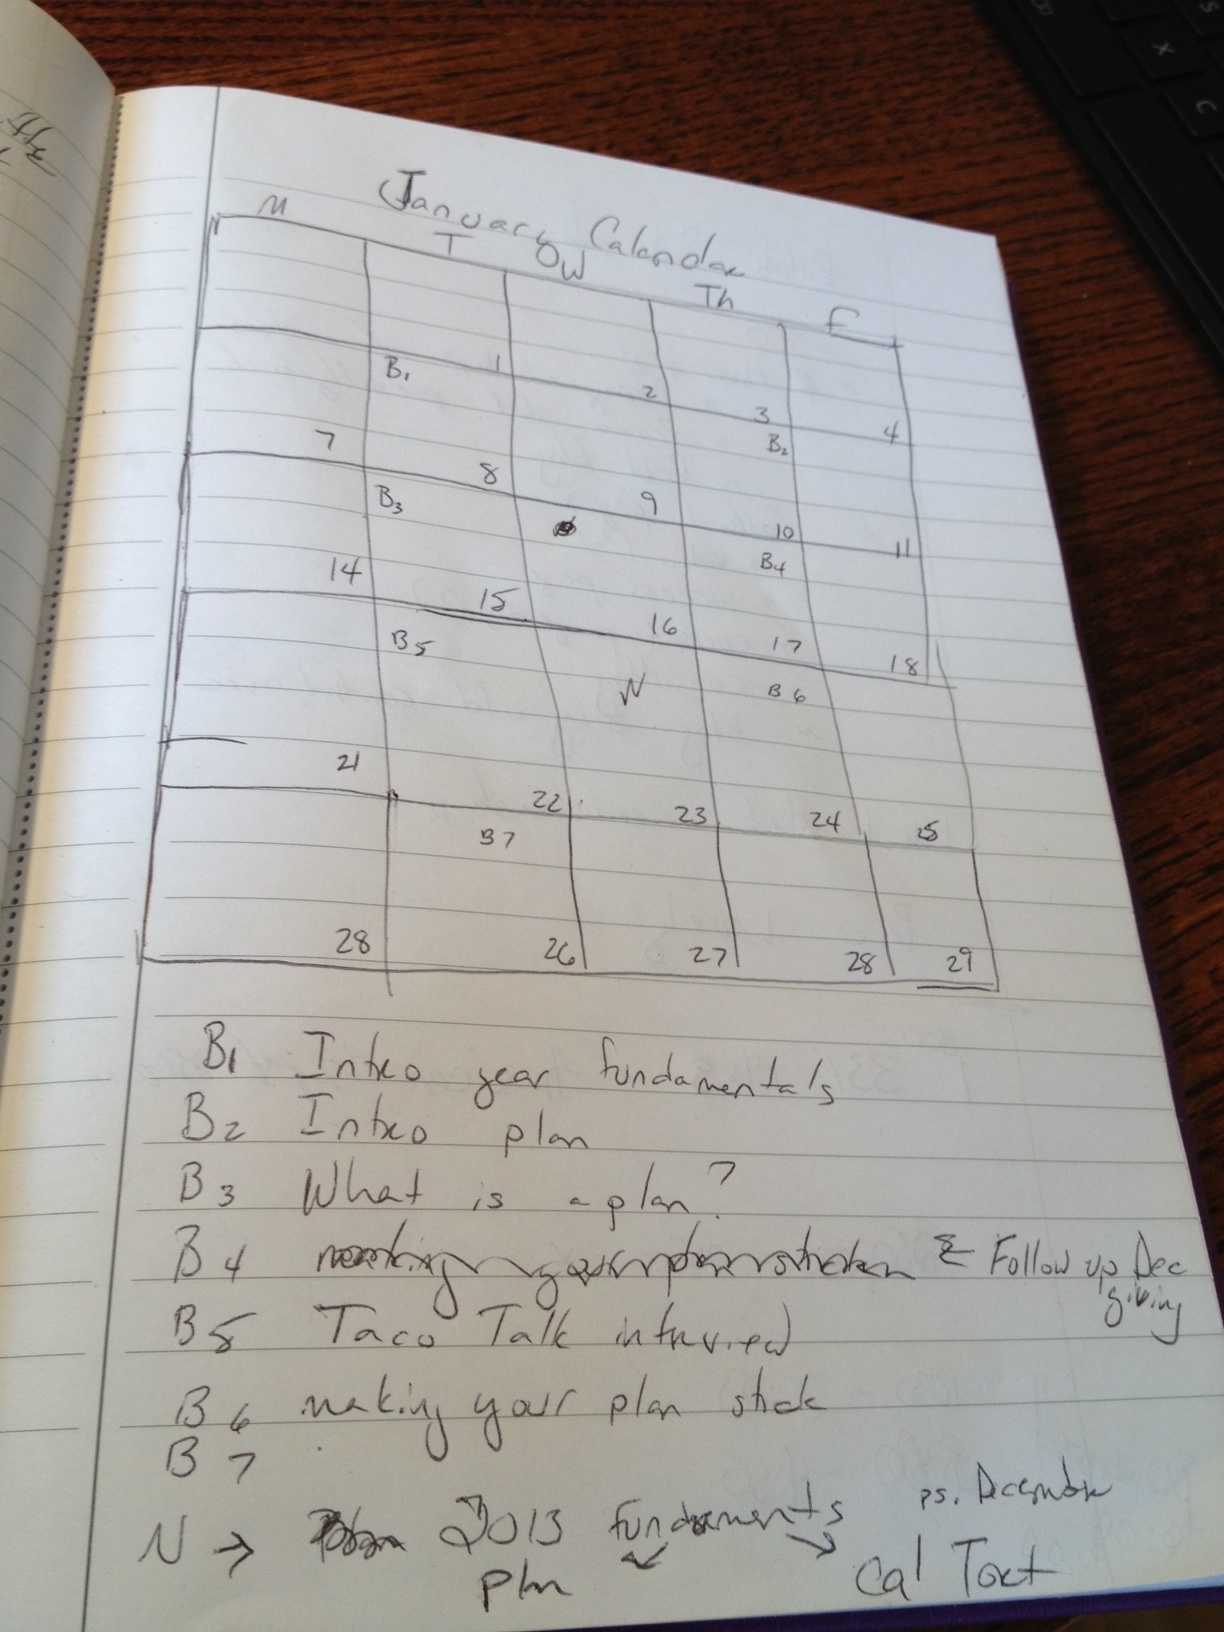 January Calendar
M T W Th F
1 2 3 4
B1 B2
7 8 9 10 11
B3 B4
14 15 16 17 18
B5 N B6
21 22 23 24 25
B7
28 26 27 28 29
B1 Intro year fundamentals
B2 Intro plan
B3 What is a plan?
B4 Follow up Dec
giving
B5 Taco Talk interview
B6 making your plan stick
B7
N → 2013 fundaments ps. December
plan Cal